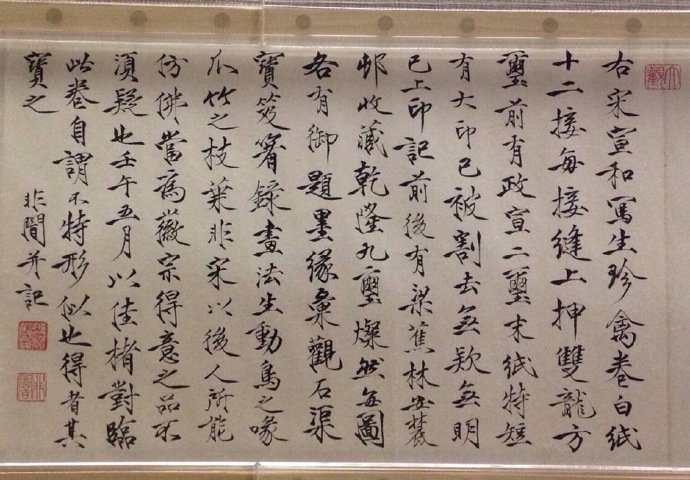 右宋宣和寫生珍禽卷白紙
十二接每接縫上押雙龍方
璽前有政宣二璽末紙特短
有大印已被割去無欵無明
已上印記前後有梁蕉林安麓
邨收藏乾隆九璽燦然每圖
各有御題墨緣彙觀石渠
寶笈箸錄畫法生動鳥之喙
爪竹之枝葉非宋以後人所能
仿佛當爲徽宗得意之品不
須疑也壬午五月以佳楮對臨
此卷自謂不特形似也得者其
寶之
非闇并記